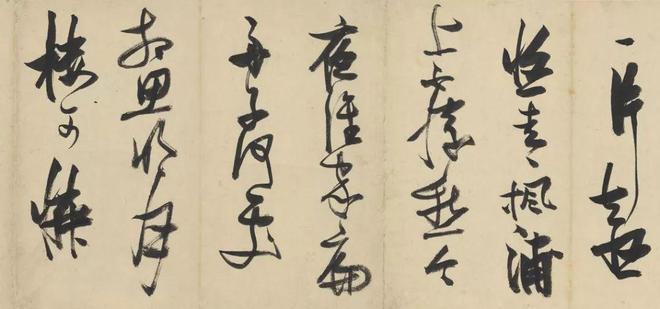 一片去悠
悠青楓浦
上不勝愁今
夜誰家扁
舟子何處
相思明月
樓可憐